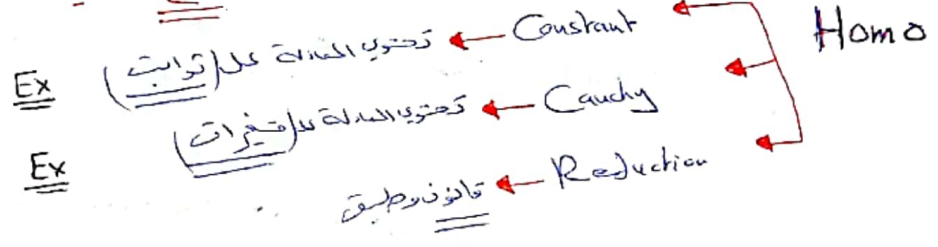 Homo
Constant ← تحتوي المعادلة على (ثوابت) Ex
Cauchy ← تحتوي المعادلة على (متغيرات) Ex
Reduction ← قانون وطبق